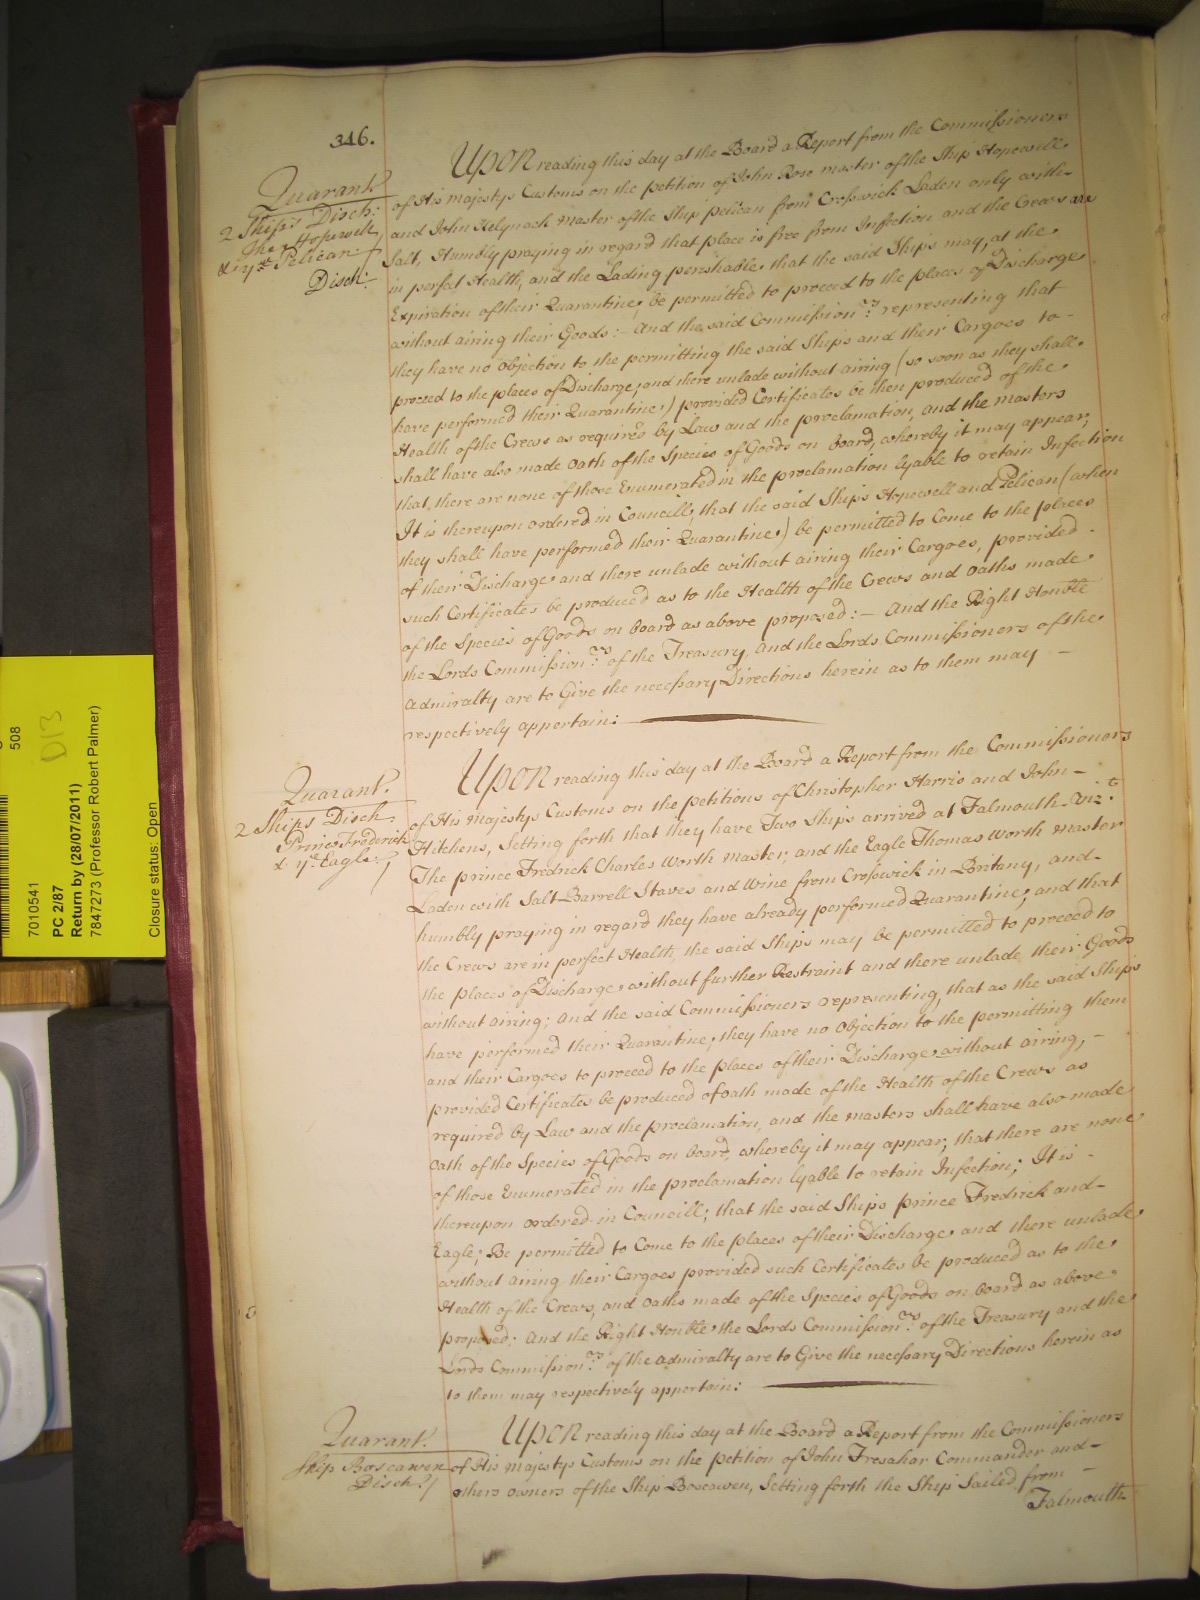 346.
Quarant.
2 Ships Disch:
The Hopewell
& ye. Pelican
Disch:
Upon reading this day at the Board a Report from the Commissioners
of His majestys Customs on the petition of John Rose master of the Ship Hopewell
and John Helynack master of the Ship pelican from Croswick Laden only with
Salt, Humbly praying in regard that place is free from Infection and the Crews are
in perfect Health, and the Lading perishable, that the said Ships may, at the
Expiration of their Quarantine, be permitted to proceed to the places of Discharge
without airing their Goods:- And the said Commission.rs representing that
they have no objection to the permitting the said Ships and their Cargoes to-
proceed to the places of Discharge, and there unlade without airing (so soon as they shall
have performed their Quarantine,) provided Certificates be then produced of the
Health of the Crews as required by Law and the proclamation, and the masters
shall have also made oath of the Species of Goods on board, whereby it may appear,
that there are none of those Enumerated in the proclamation lyable to retain Infection
It is thereupon ordered in Councill, that the said Ships Hopewell and Pelican (when
they shall have performed their Quarantine,) be permitted to Come to the places
of their Discharge and there unlade without airing their Cargoes, provided-
such Certificates be produced as to the Health of the Crews and oaths made
of the Species of Goods on board as above proposed:- And the Right Honble
the Lords Commission.rs of the Treasury, and the Lords Commissioners of the
Admiralty are to Give the necessary Directions herein as to them may -
respectively appertain:
Quarant.
2 Ships Disch.
Prince Frederick
& ye. Eagle
Upon reading this day at the Board a Report from the Commissioners
of His Majestys Customs on the petitions of Christopher Harris and John-
Hitchens, Setting forth that they have Two Ships arrived at Falmouth. Viz.t
The prince Fredrick Charles Worth master, and the Eagle Thomas Worth master
Laden with Salt Barrell Staves and Wine from Croswick in Britany, and-
humbly praying in regard they have already performed Quarantine, and that
the Crews are in perfect Health, the said Ships may be permitted to proceed to
the places of Discharge, without further Restraint and there unlade their Goods
without airing; And the said Commissioners representing, that as the said Ships
have performed their Quarantine, they have no objection to the permitting them
and their Cargoes to proceed to the places of their Discharge, without airing,-
provided Certificates be produced of oath made of the Health of the Crews as
required by Law and the proclamation, and the masters shall have also made
oath of the Species of Goods on board, whereby it may appear, that there are none
of those Enumerated in the proclamation lyable to retain Infection; It is -
thereupon ordered in Councill; that the said Ships prince Fredrick and-
Eagle; Be permitted to Come to the places of their Discharge, and there unlade
without airing their Cargoes provided such Certificates be produced as to the
Health of the Crews, and oaths made of the Species of Goods on board as above
proposed: And the Right Honble the Lords Commission.rs of the Treasury and the
Lords Commission.rs of the Admiralty are to Give the necessary Directions herein as
to them may respectively appertain:
Quarant.
Ship Boscawen
Disch:
Upon reading this day at the Board a Report from the Commissioners
of His majestys Customs on the petition of John Tresahar Commander and-
others owners of the Ship Boscawen, Setting forth the Ship Sailed from -
Falmouth
508
D13
7010541
PC 2/87
Return by (28/07/2011)
7847273 (Professor Robert Palmer)
Closure status: Open